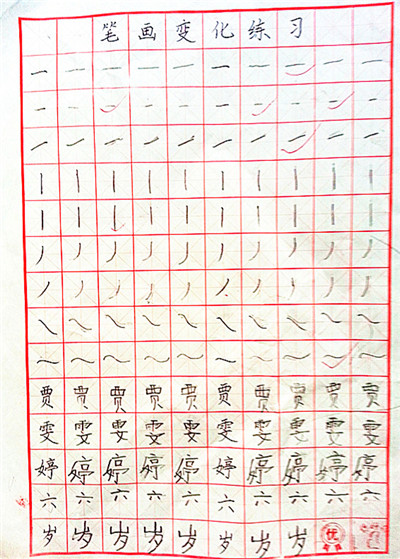 笔画变化练习
一 一 一 一 一 一 一 一 一 一
一 一 一 一 一 一 一 一 一 一
一 一 一 一 一 一 一 一 一 一
丨 丨 丨 丨 丨 丨 丨 丨 丨 丨
丨 丨 丨 丨 丨 丨 丨 丨 丨 丨
丿 丿 丿 丿 丿 丿 丿 丿 丿 丿
丿 丿 丿 丿 丿 丿 丿 丿 丿 丿
㇏ ㇏ ㇏ ㇏ ㇏ ㇏ ㇏ ㇏ ㇏ ㇏
㇏ ㇏ ㇏ ㇏ ㇏ ㇏ ㇏ ㇏ ㇏ ㇏
贾 贾 贾 贾 贾 贾 贾 贾 贾 贾
雯 雯 雯 雯 雯 雯 雯 雯 雯 雯
婷 婷 婷 婷 婷 婷 婷 婷 婷 婷
六 六 六 六 六 六 六 六 六 六
岁 岁 岁 岁 岁 岁 岁 岁 优